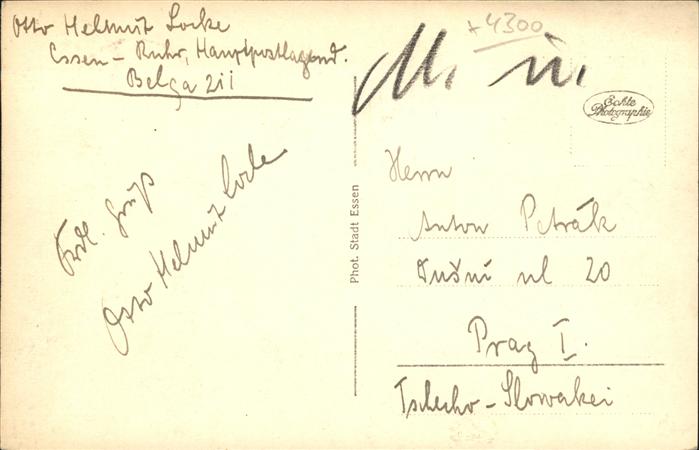 Otto Helmut Locke
Essen - Ruhr, Hauptpostlagernd.
Belga 211
+4300
M. ü.
Echte
Photographie
Frdl. Gruß
Otto Helmut Locke
Phot. Stadt Essen
Herrn
Anton Petrák
Dušní ul 20
Prag I.
Tschecho-Slowakei